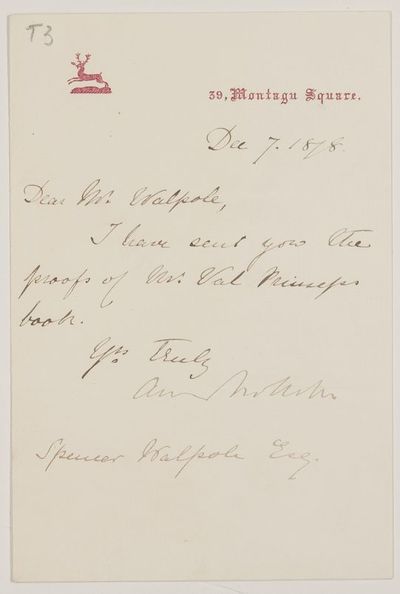 T3
39, Montagu Square.
Dec 7. 1878.
Dear Mr. Walpole,
I have sent you the
proofs of Mr. Val Prinseps
book.
Yrs truly
Spencer Walpole Esq.